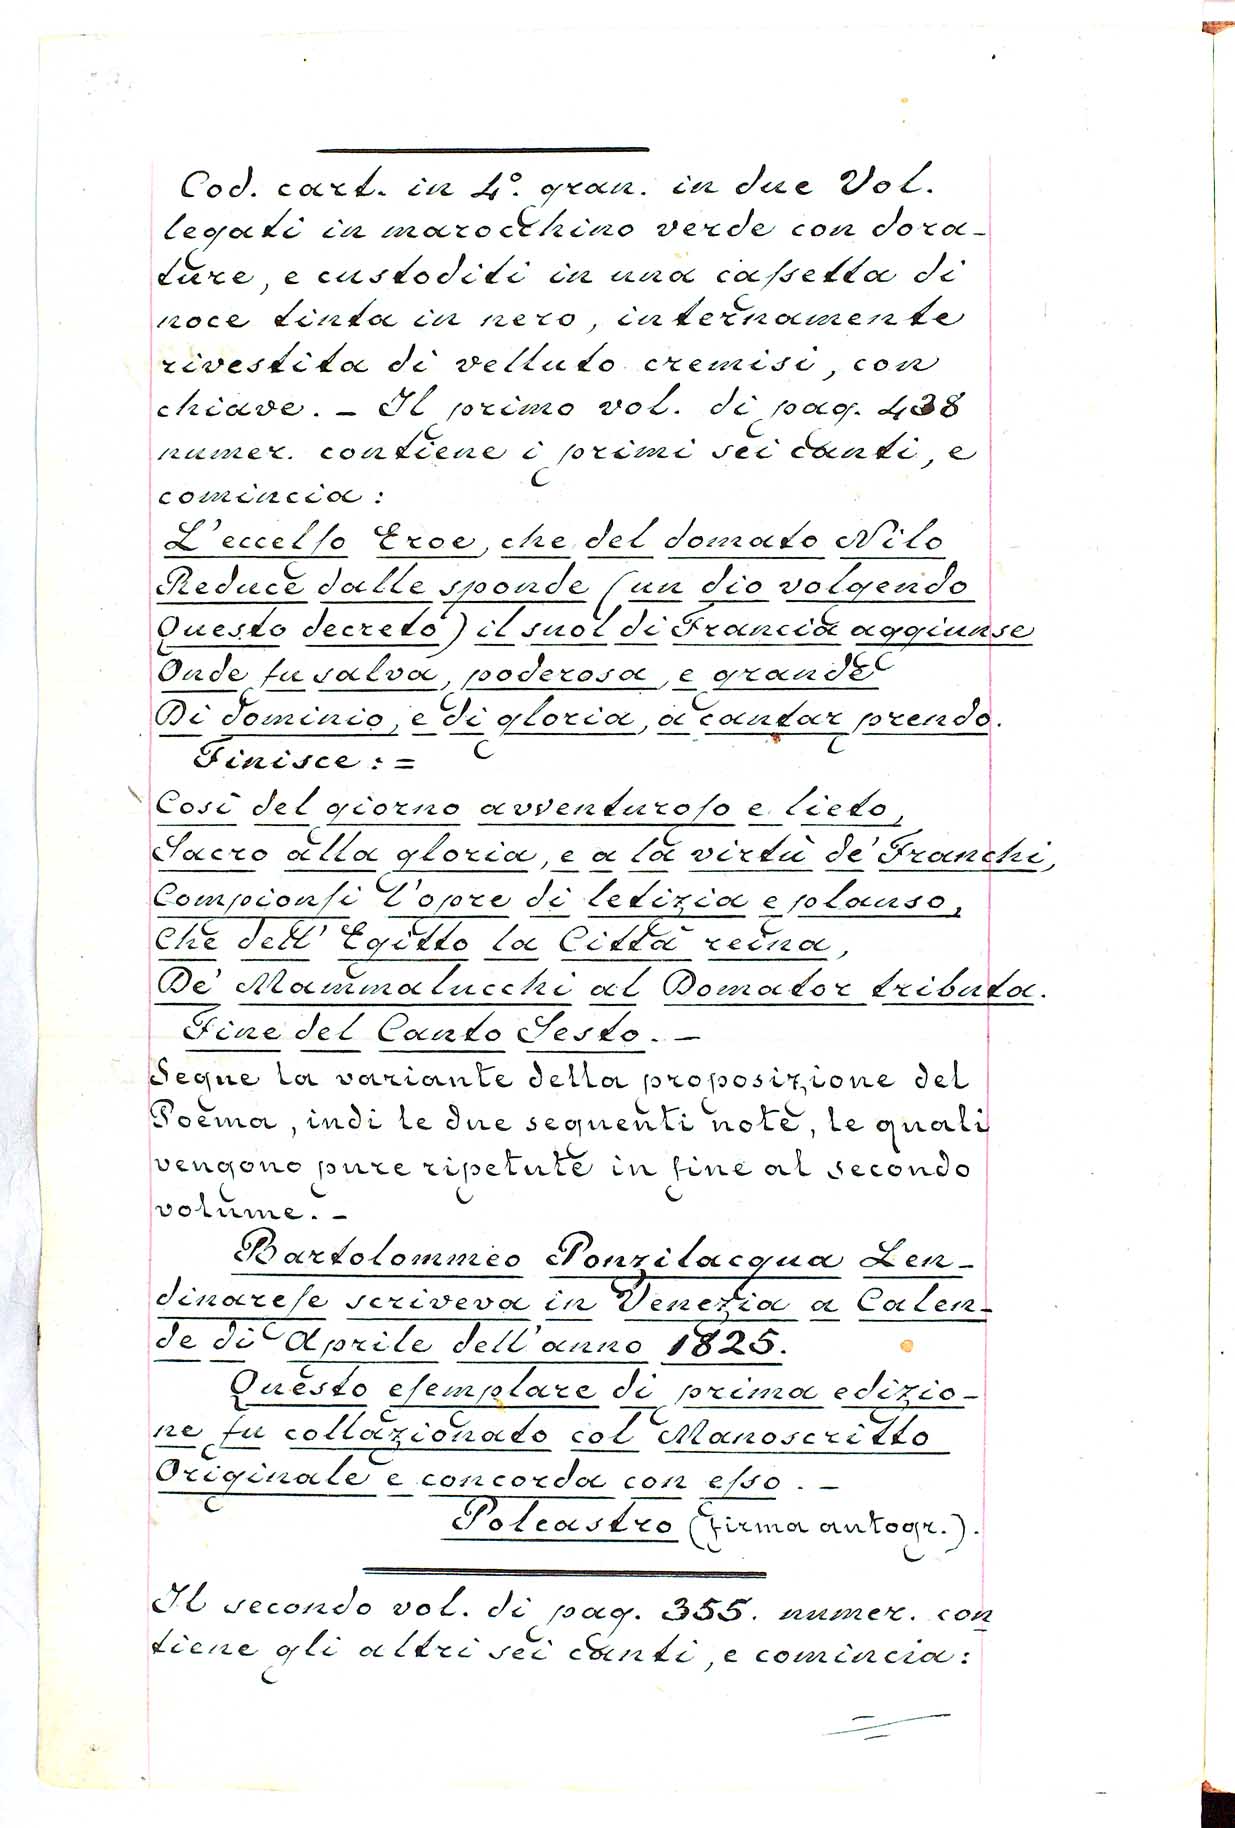 Cod. cart. in 4º. gran. in due Vol.
legati in marocchino verde con dora-
ture, e custoditi in una caſsetta di
noce tinta in nero, internamente
rivestita di velluto cremisi, con
chiave. - Il primo vol. di pag. 438
numer. contiene i primi sei canti, e
comincia:
L'eccelſo Eroe, che del domato Nilo
Reduce dalle sponde (un dio volgendo
Questo decreto) il suol di Francia aggiunse
Onde fu salva, poderosa, e grande
Di dominio, e di gloria, a cantar prendo.
Finisce: =
Così del giorno avventuroſo e lieto,
Sacro alla gloria, e a la virtù de' Franchi,
Compionſi l'opre di letizia e plauso,
Che dell' Egitto la Città reina,
De' Mammalucchi al Domator tributa.
Fine del Canto Sesto. -
Segue la variante della proposizione del
Poema, indi le due seguenti note, le quali
vengono pure ripetute in fine al secondo
volume. -
Bartolommeo Ponzilacqua Len-
dinareſe scriveva in Venezia a Calen-
de di Aprile dell'anno 1825.
Questo eſemplare di prima edizio-
ne fu collazionato col Manoscritto
Originale e concorda con eſso. -
Polcastro (firma autogr.).
Il secondo vol. di pag. 355. numer. con
tiene gli altri sei canti, e comincia: